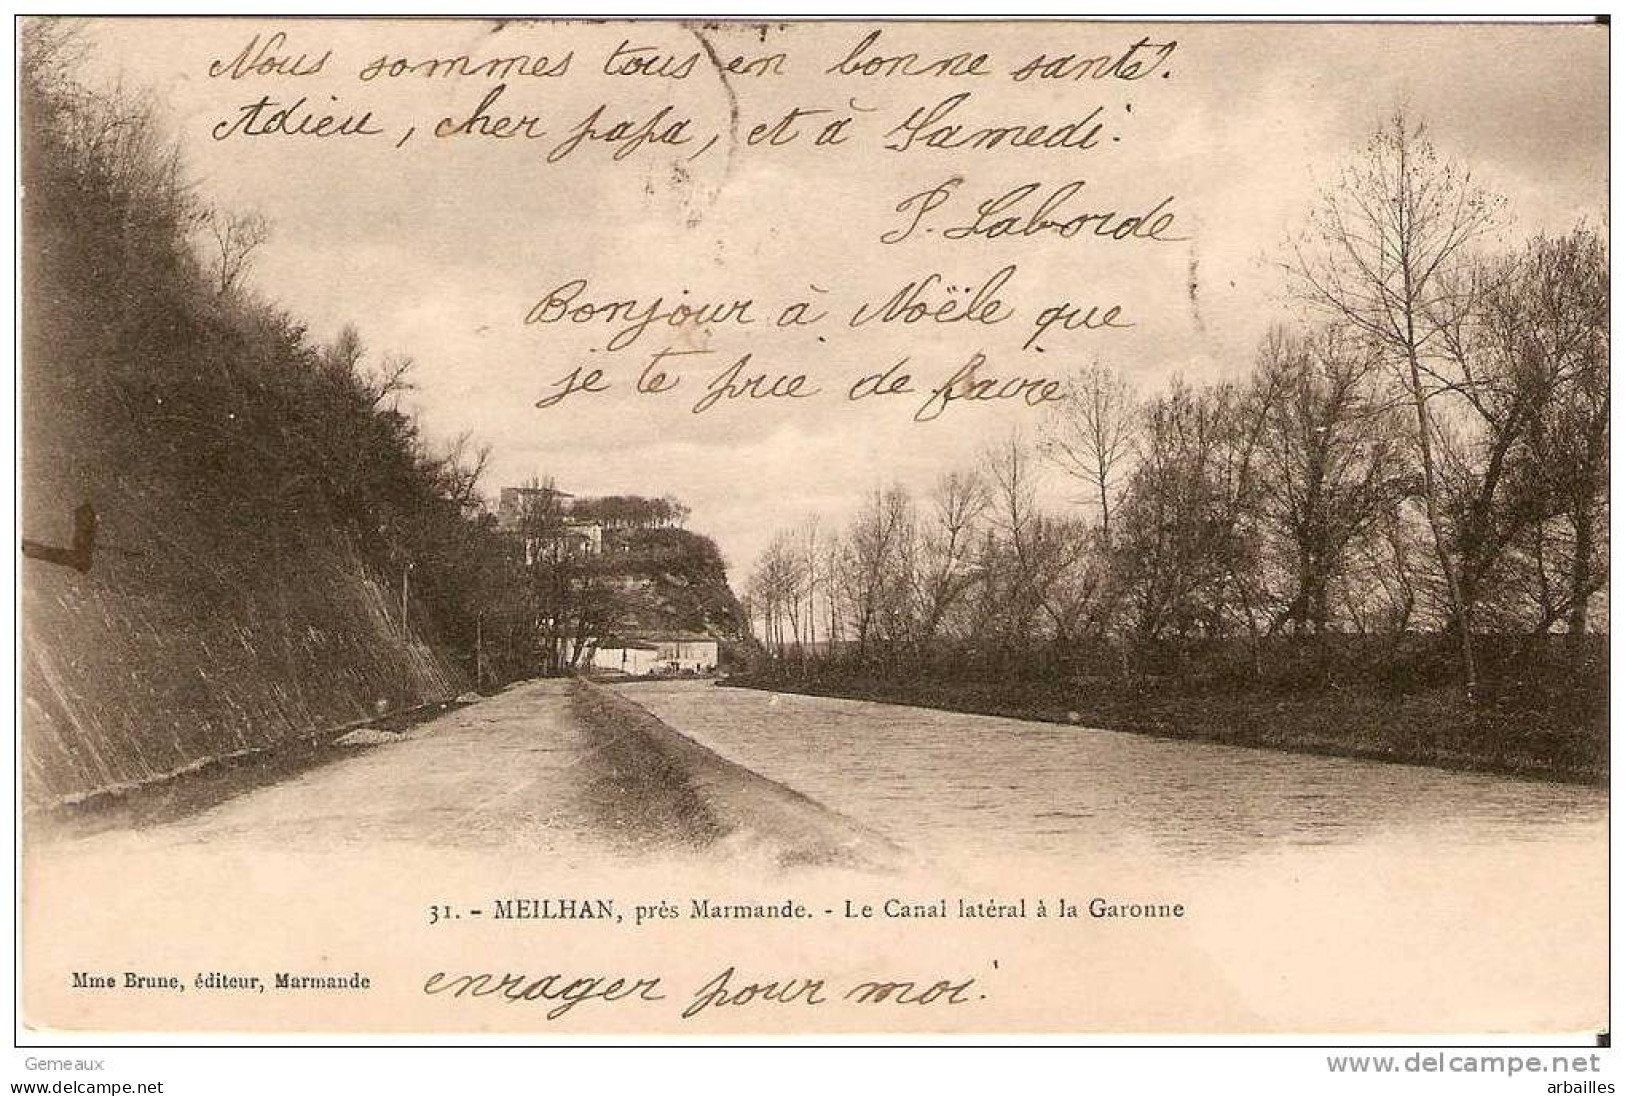 Nous sommes tous en bonne santé.
Adieu, cher papa, et à Samedi.
P. Laborde
Bonjour à Noële que
je te prie de faire
31. - MEILHAN, près Marmande. - Le Canal latéral à la Garonne
Mme Brune, éditeur, Marmande
enrager pour moi.
Gemeaux
delcampe.net
www.delcampe.net
arbailles